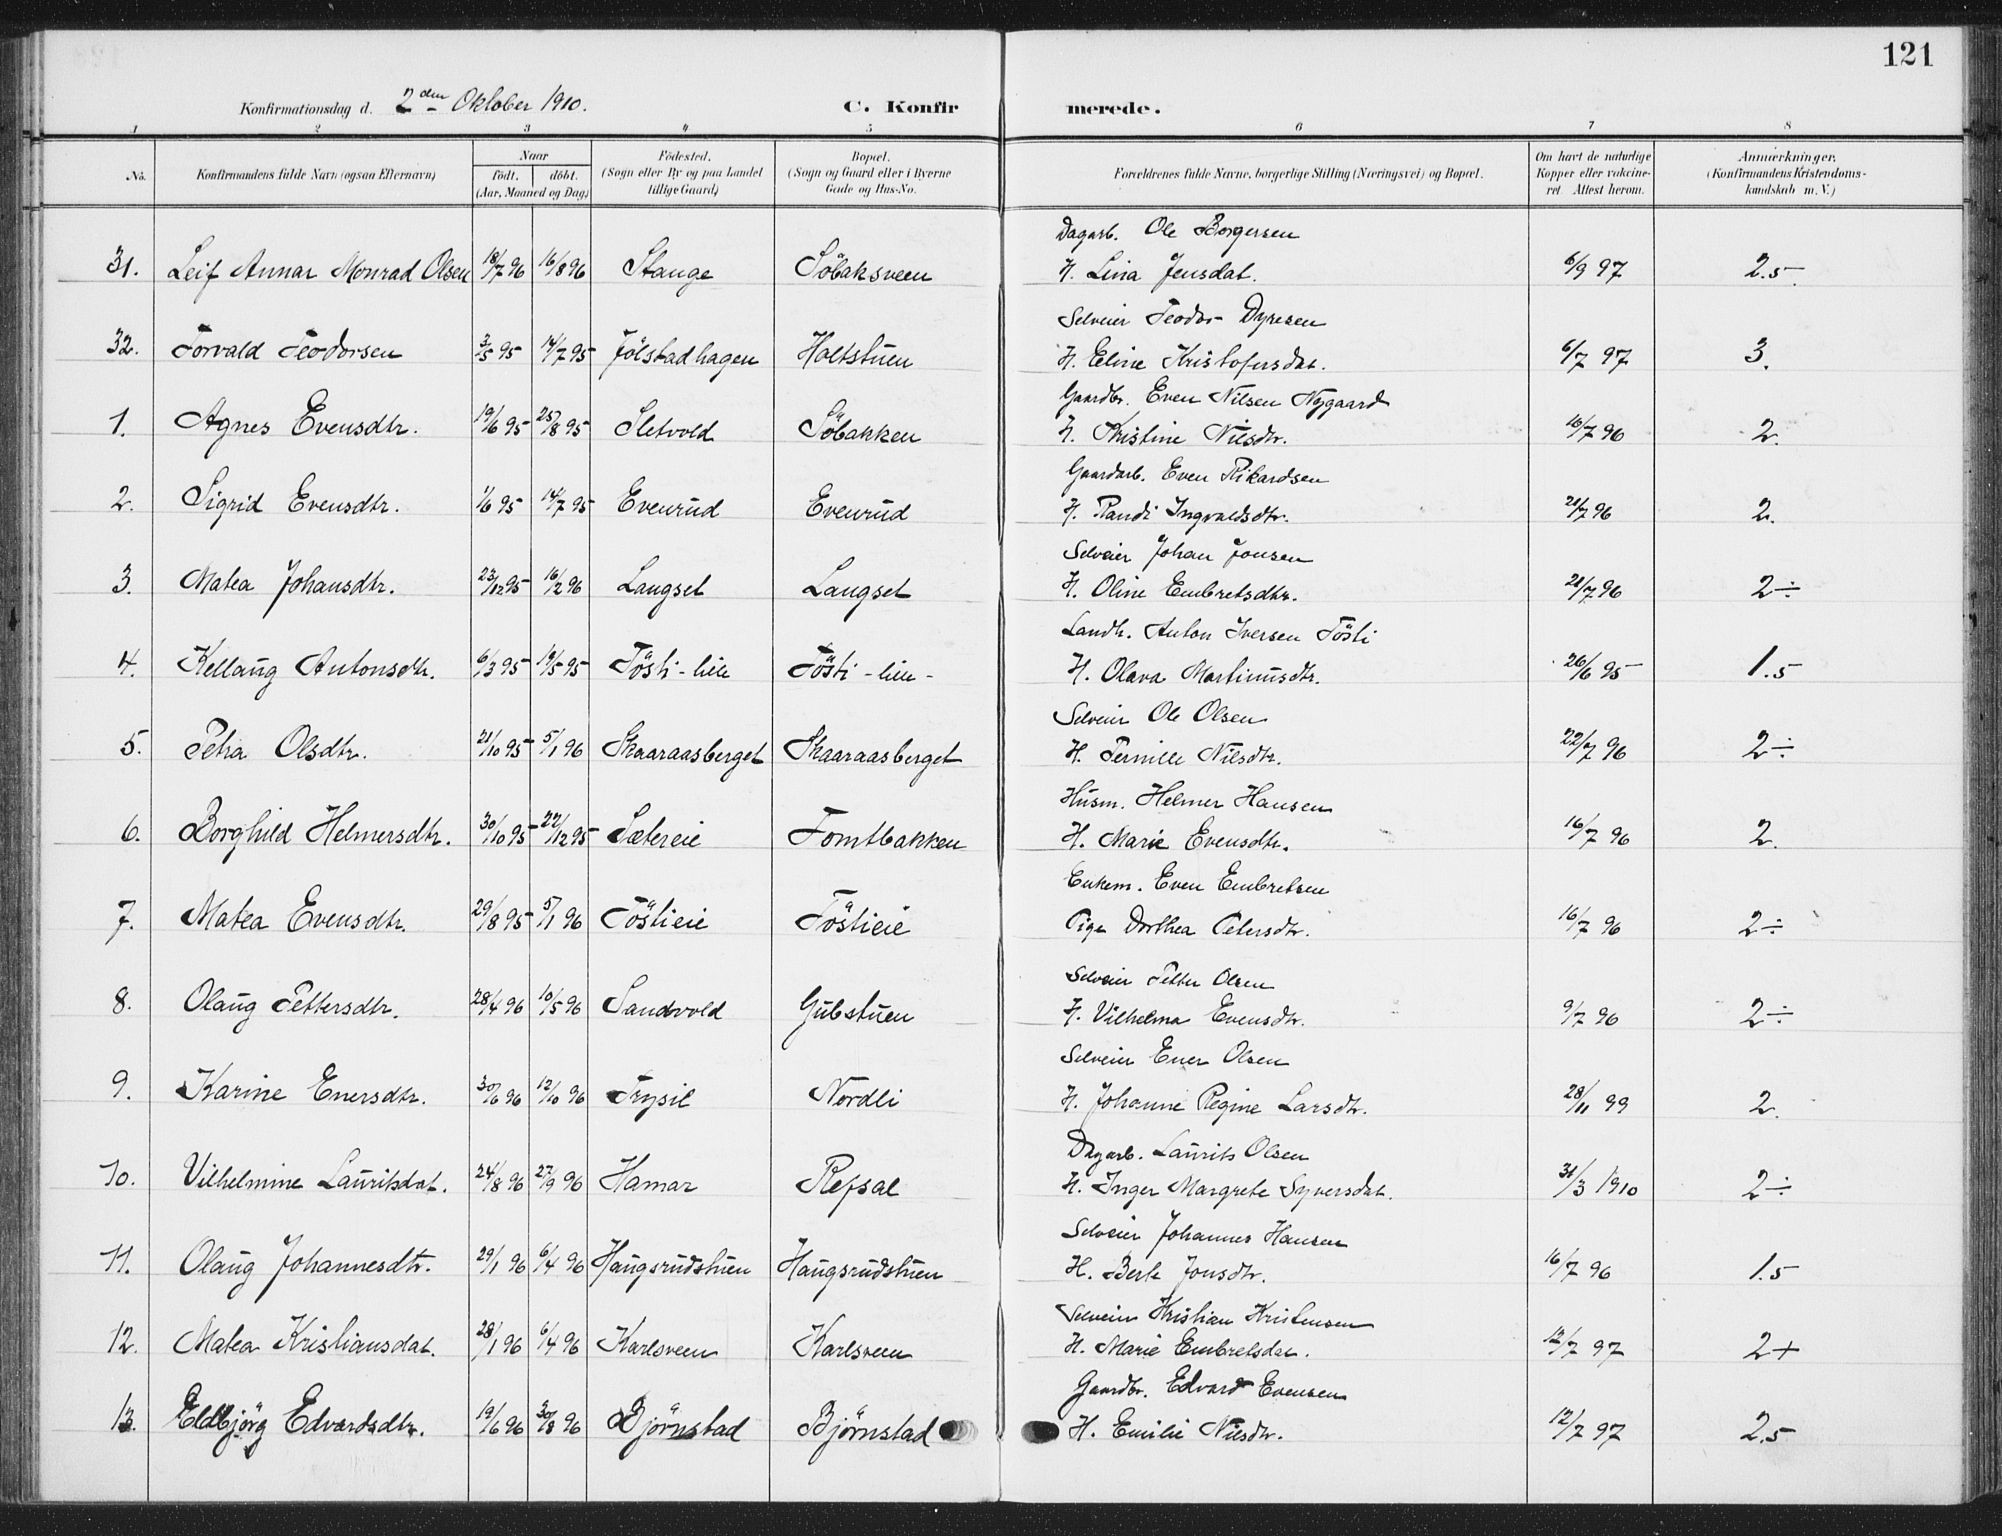 121
Konfirmationsdag d. 2den Oktober 1910. C. Konfirmerede.
1 2 3 4 5 6 7 8
No. Konfirmandens fulde Navn (ogsaa Efternavn) Naar født. døbt. (Aar, Maaned og Dag) Fødested. (Sogn eller By og paa Landet tillige Gaard) Bopæl. (Sogn og Gaard eller i Byerne Gade og Hus-No. Forældrenes fulde Navne, borgerlige Stilling (Næringsvei) og Bopæl. Om havt de naturlige Kopper eller vakcineret. Attest herom. Anmærkninger. (Konfirmandens Kristendomskundskab m. V.)
Dagarb. Ole Borgersen
31. Leif Annar Monrad Olsen 18/7 96 16/8 96 Stange Söbaksveen H. Lina Jensdat. 6/9 97 2.5
Selveier Teodor Dyresen
32. Torvald Teodorsen 3/5 95 14/7 95 Jölstadhagen Holtstuen H. Eline Kristofersdat. 6/7 97 3.
Gaardbr. Even Nilsen Nygaard
1. Agnes Evensdtr. 19/6 95 25/8 95 Sletvold Söbakken H. Kristine Nilsdtr. 16/7 96 2.
Gaardarb. Even Rikardsen
2. Sigrid Evensdtr. 1/6 95 14/7 95 Evenrud Evenrud H. Randi Ingvaldsdtr. 21/7 96 2.
Selveier Johan Jonsen
3. Matea Johansdtr. 23/12 95 16/2 96 Langset Langset H. Oline Embretsdtr. 21/7 96 2÷
Landh. Anton Iversen Tösti
4. Kellaug Antonsdtr. 6/3 95 19/5 95 Tösti-lien Tösti-lien- H. Olava Martinusdtr. 26/6 95 1.5
Selveier Ole Olsen
5. Petra Olsdtr. 21/10 95 5/1 96 Skaaraasberget Skaaraasberget H. Pernille Nilsdtr. 22/7 96 2÷
Husm. Helmer Hansen
6. Borghild Helmersdtr. 30/10 95 22/12 95 Sætereie Tomtbakken H. Marie Evensdtr. 16/7 96 2.
Enkem. Even Embretsen
7. Matea Evensdtr. 29/8 95 5/1 96 Töstieie Töstieie Pige Dorthea Petersdtr. 16/7 96 2÷
Selveier Petter Olsen
8. Olaug Pettersdtr. 28/4 96 10/5 96 Sandvold Gubstuen H. Vilhelma Evensdtr. 9/7 96 2÷
Selveier Ener Olsen
9. Karine Enersdtr. 30/6 96 12/10 96 Trysil Nordli H. Johanne Regine Larsdtr. 28/11 99 2.
Dagarb. Laurits Olsen
10. Vilhelmine Lauritsdat. 24/8 96 27/9 96 Hamar Refsal H. Inger Margrete Syversdat. 31/3 1910 2÷
Selveier Johannes Hansen
11. Olaug Johannesdtr. 29/1 96 6/4 96 Haugsrudstuen Haugsrudstuen H. Berte Jonsdtr. 16/7 96 1.5
Selveier Kristian Kristensen
12. Matea Kristiansdat. 28/1 96 6/4 96 Karlsveen Karlsveen H. Marie Embretsdat. 12/7 97 2+
Gaardbr. Edvard Evensen
13. Eldbjörg Edvardsdtr. 19/6 96 30/8 96 Björnstad Björnstad H. Emilie Nilsdtr. 12/7 97 2.5